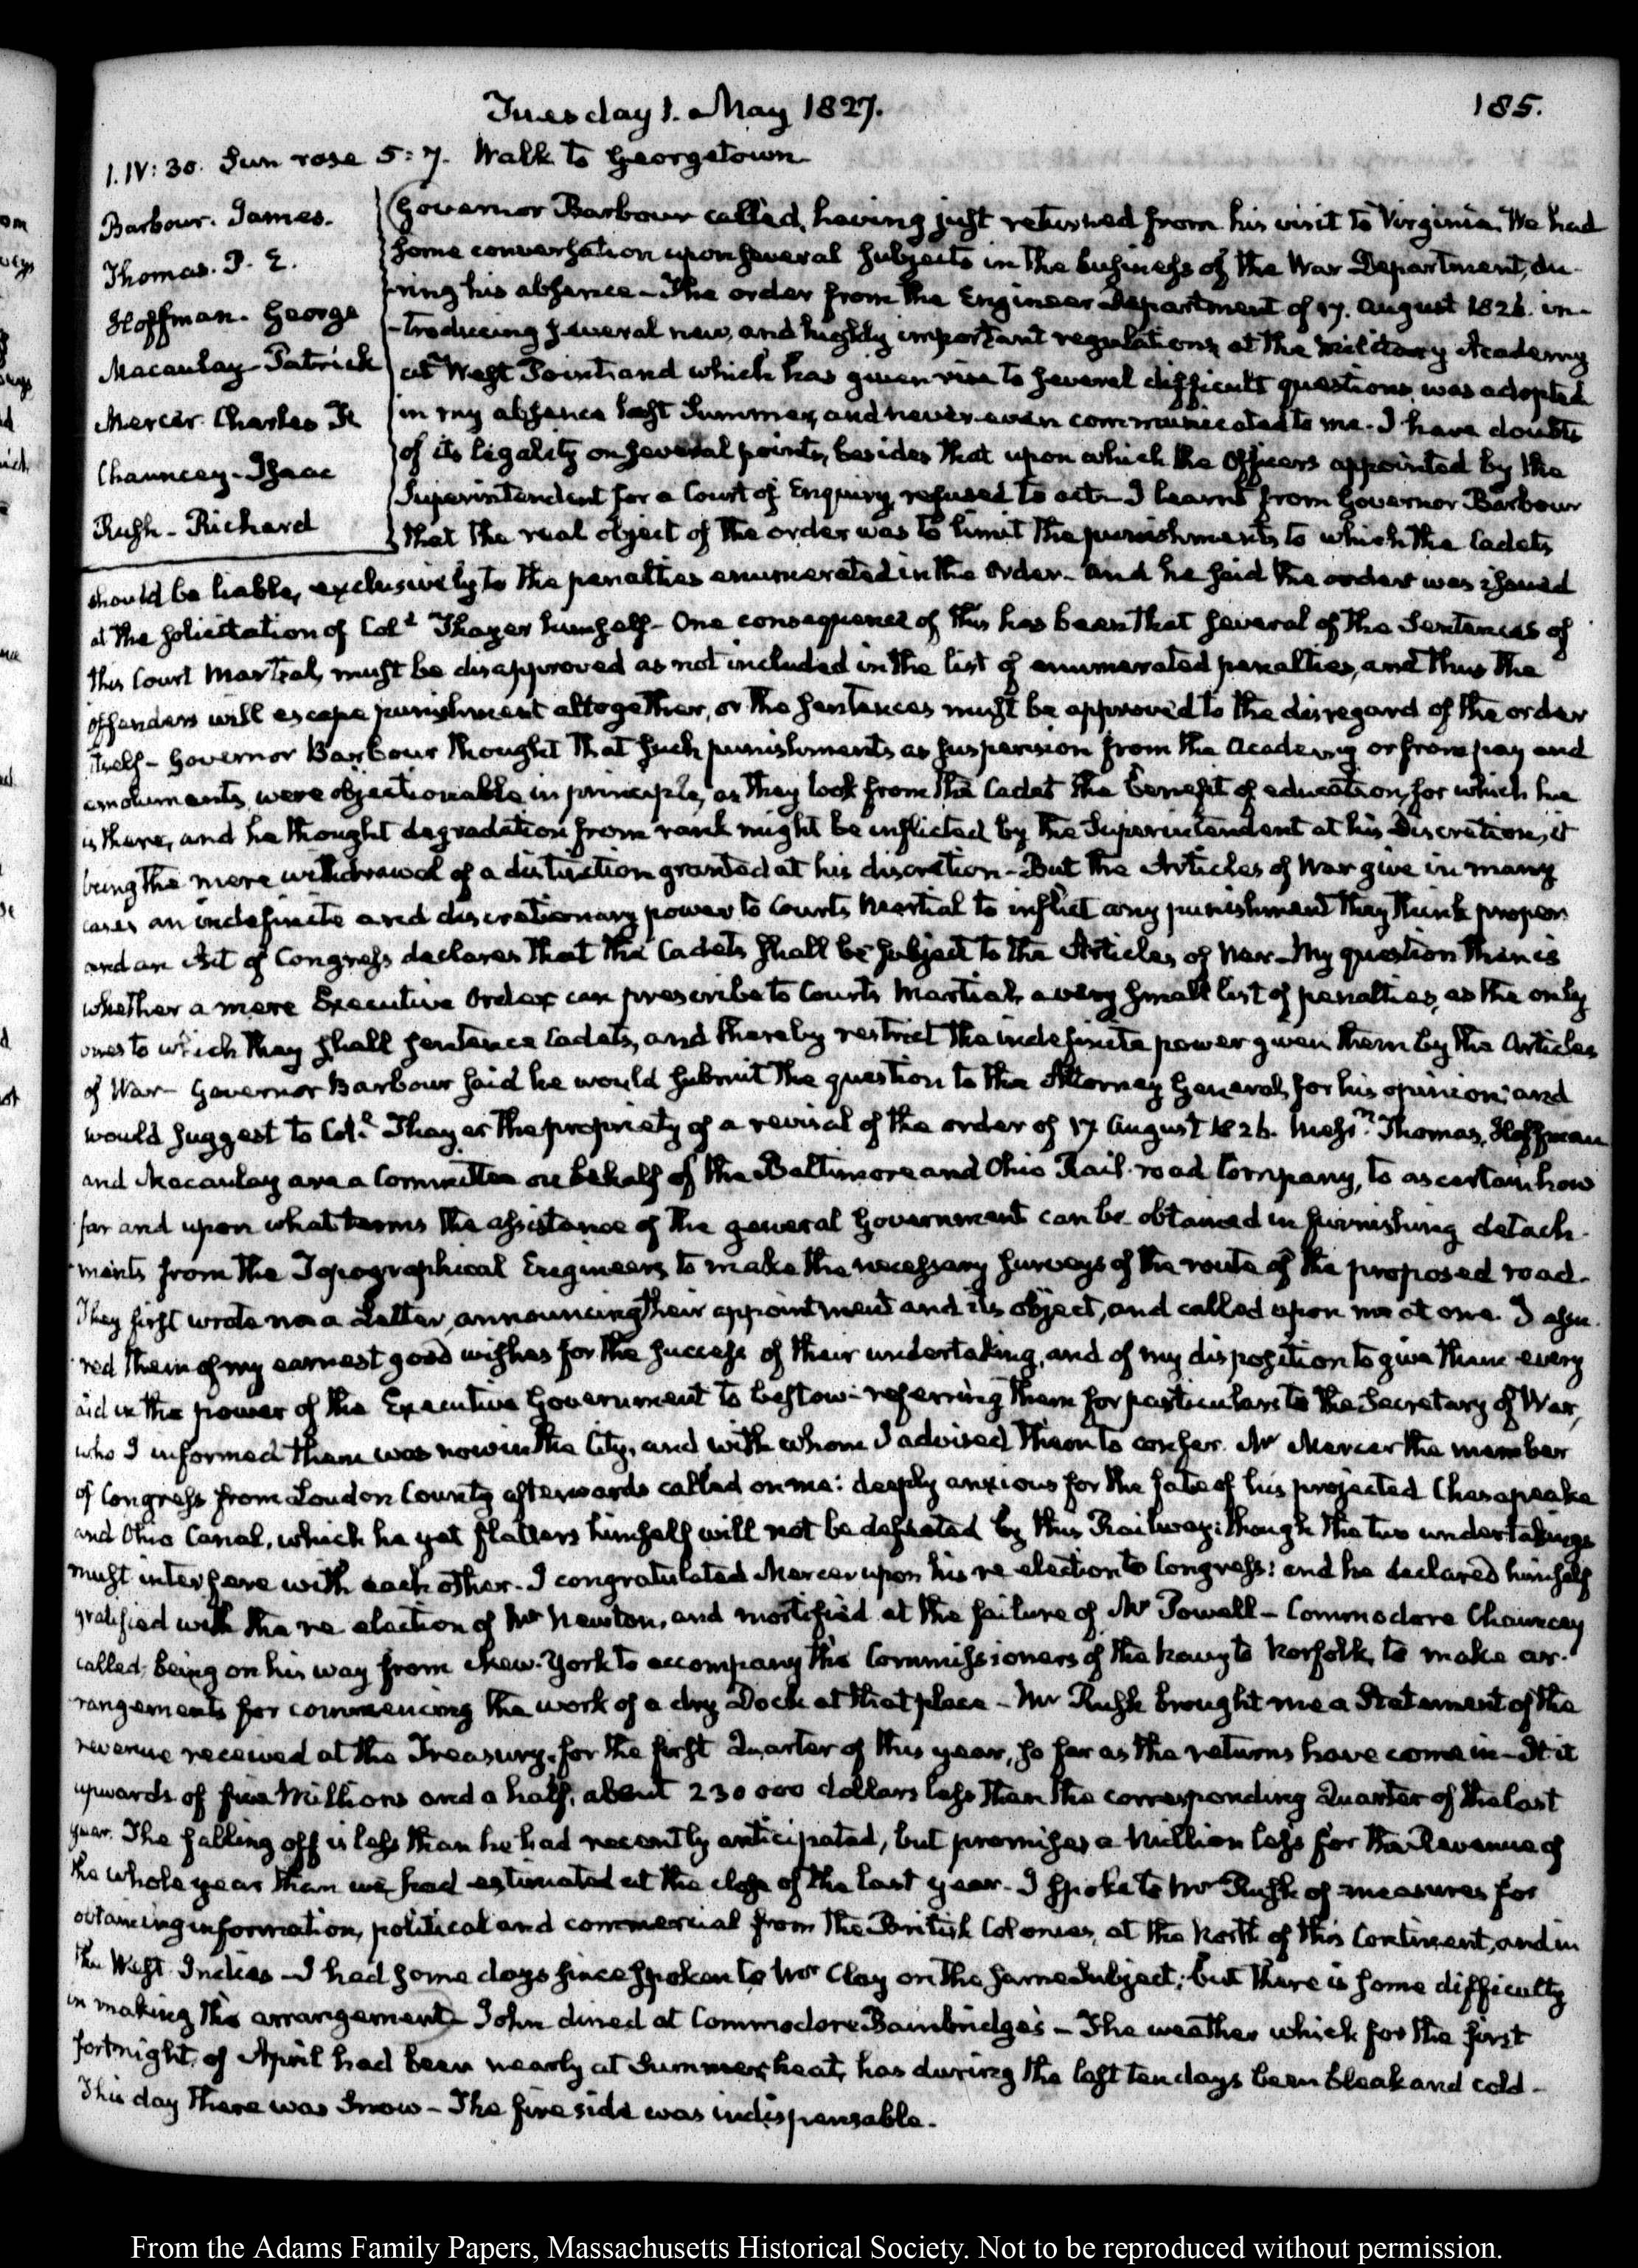 Tuesday 1. May 1827.
185.
1. IV: 30. Sun rose 5:7. Walk to Georgetown
Barbour. James.
Thomas. P. E.
Hoffman. George
Macaulay- Patrick
Mercer. Charles F.
Chauncey- Isaac
Rush- Richard
Governor Barbour called, having just returned from his visit to Virginia. We had
some conversation upon several subjects in the business of the War Department, du-
-ring his absence- The order from the Engineer Department of 17. August 1826. in-
-troducing several new, and highly important regulations at the Military Academy
at West Point, and which has given rise to several difficult questions, was adopted
in my absence last Summer, and never even communicated to me. I have doubts
of its legality on several points, besides that upon which the Officers appointed by the
Superintendent for a Court of Enquiry, refused to act- I learnt from Governor Barbour
that the real object of the order was to limit the punishments to which the Cadets
should be liable, exclusively to the penalties enumerated in the order- and he said the order was issued
at the solicitation of Coll. Thayer himself- One consequence of this has been that several of the Sentences of
this Court Martial, must be disapproved as not included in the list of enumerated penalties, and thus the
offenders will escape punishment altogether, or the sentences must be approved to the disregard of the order
itself- Governor Barbour thought that such punishments as suspension from the Academy or from pay and
emoluments, were objectionable in principle, as they took from the Cadet the benefit of education, for which he
is there, and he thought degradation from rank might be inflicted by the Superintendent at his discretion, it
being the mere withdrawal of a distinction granted at his discretion- But the Articles of War give in many
cases an indefinite and discretionary power to Courts Martial to inflict any punishment they think proper
and an Act of Congress declares that the Cadets shall be subject to the Articles of War- My question then is
whether a mere Executive Order can prescribe to Courts Martial, a very small list of penalties, as the only
ones to which they shall sentence Cadets, and thereby restrict the indefinite power given them by the Articles
of War- Governor Barbour said he would submit the question to the Attorney General, for his opinion; and
would suggest to Coll. Thayer the propriety of a revisal of the order of 17 August 1826. Messrs. Thomas, Hoffman
and Macaulay are a Committee on behalf of the Baltimore and Ohio Rail-road Company, to ascertain how
far and upon what terms the assistance of the general Government can be obtained in furnishing detach-
-ments from the Topographical Engineers to make the necessary surveys of the route of the proposed road-
They first wrote me a Letter, announcing their appointment and its object, and called upon me at one. I assu-
-red them of my earnest good wishes for the success of their undertaking, and of my disposition to give them every
aid in the power of the Executive Government to bestow- referring them for particulars to the Secretary of War,
who I informed them was now in the City, and with whom I advised them to confer. Mr Mercer the member
of Congress from Loudon County afterwards called on me: deeply anxious for the fate of his projected Chesapeake
and Ohio Canal, which he yet flatters himself will not be defeated by this Railway: though the two undertakings
must interfere with each other. I congratulated Mercer upon his re election to Congress: and he declared himself
gratified with the re election of Mr Newton, and mortified at the failure of Mr Powell- Commodore Chauncey
called; being on his way from New-York to accompany the Commissioners of the Navy to Norfolk, to make ar-
-rangements for commencing the work of a dry Dock at that place- Mr Rush brought me a Statement of the
revenue received at the Treasury, for the first Quarter of this year, so far as the returns have come in- It is
upwards of five Millions and a half, about 230 000 dollars less than the corresponding Quarter of the last
year. The falling off is less than he had recently anticipated, but promises a Million less for the Revenue of
the whole year than we had estimated at the close of the last year- I spoke to Mr Rush of measures for
obtaining information, political and commercial from the British Colonies, at the North of this Continent, and in
the West-Indies- I had some days since spoken to Mr Clay on the same subject; but there is some difficulty
in making the arrangement- John dined at Commodore Bainbridge's- The weather which for the first
fortnight of April had been nearly at Summer heat, has during the last ten days been bleak and cold-
This day there was Snow- The fire side was indispensable.
From the Adams Family Papers, Massachusetts Historical Society. Not to be reproduced without permission.